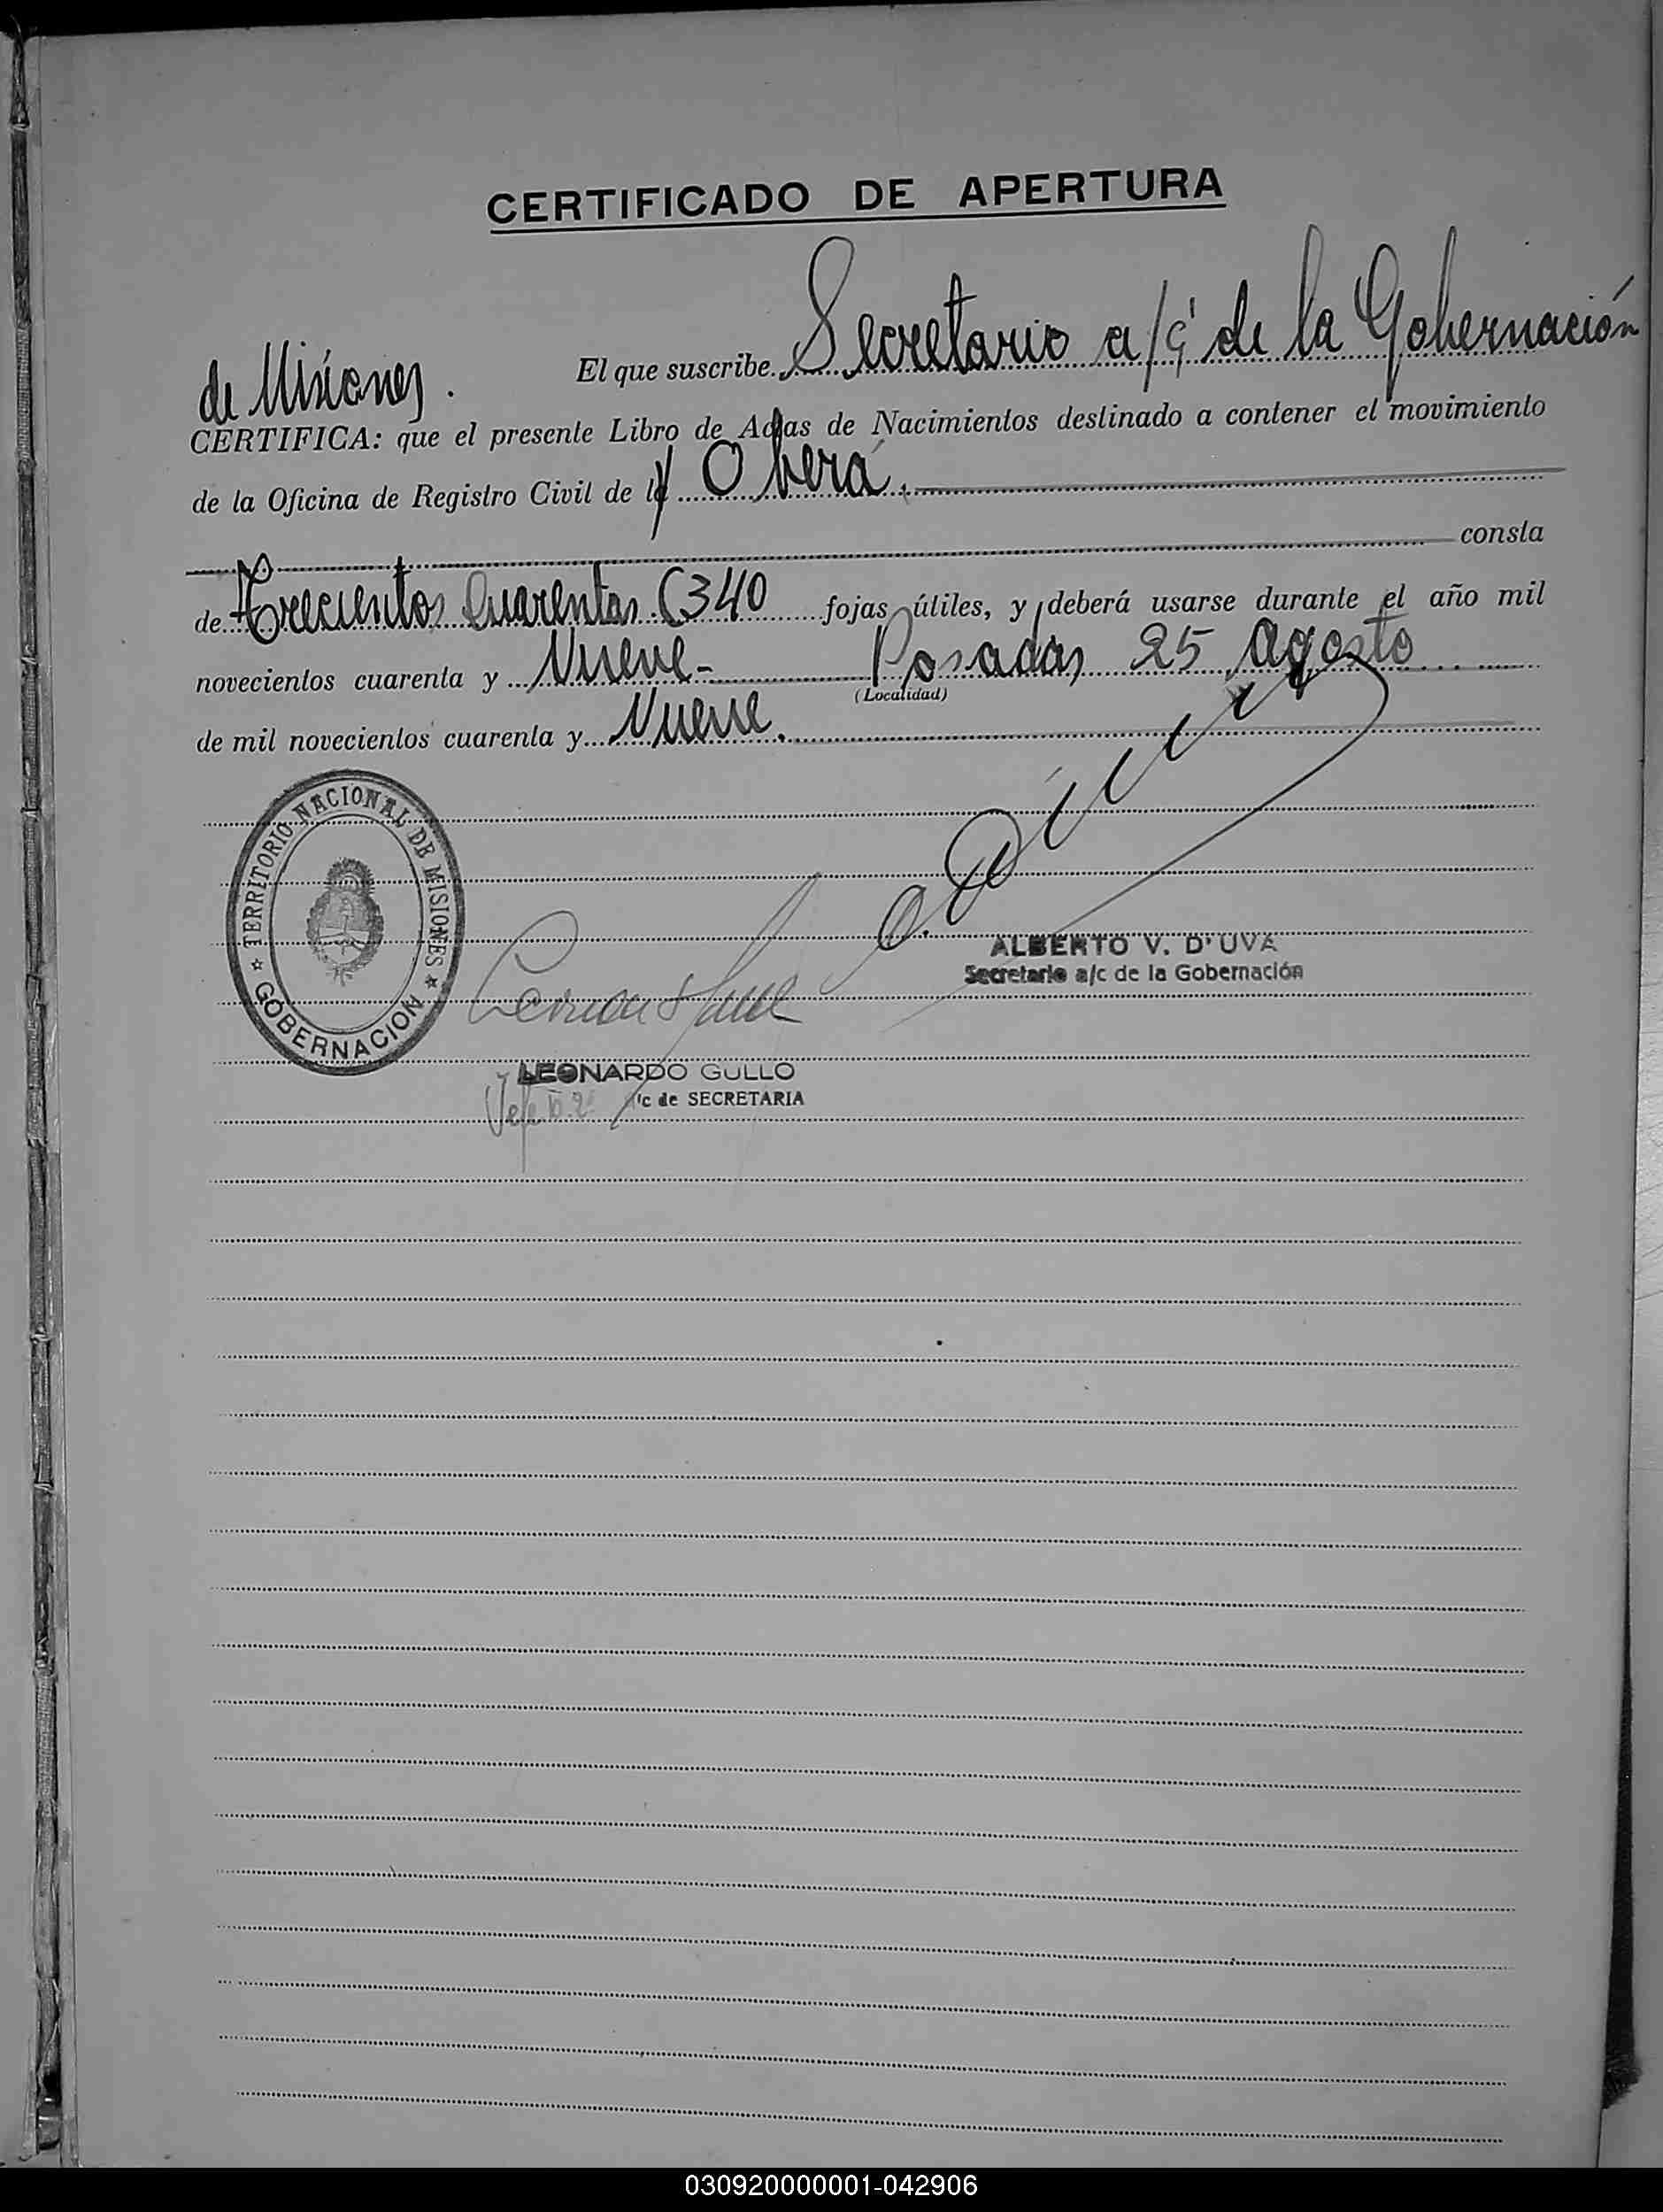 CERTIFICADO DE APERTURA
El que suscribe Secretario a/c de la Gobernación
de Misiones.
CERTIFICA: que el presente Libro de Actas de Nacimientos destinado a contener el movimiento
de la Oficina de Registro Civil de la Oberá.
consta
de Trecientos Cuarentas (340 fojas útiles, y deberá usarse durante el año mil
novecientos cuarenta y Nueve- Posadas 25 Agosto
(Localidad)
de mil novecientos cuarenta y Nueve.
TERRITORIO NACIONAL DE MISIONES
GOBERNACION
ALBERTO V. D'UVA
Secretario a/c de la Gobernación
LEONARDO GULLO
Jefe a/c de SECRETARIA
030920000001-042906